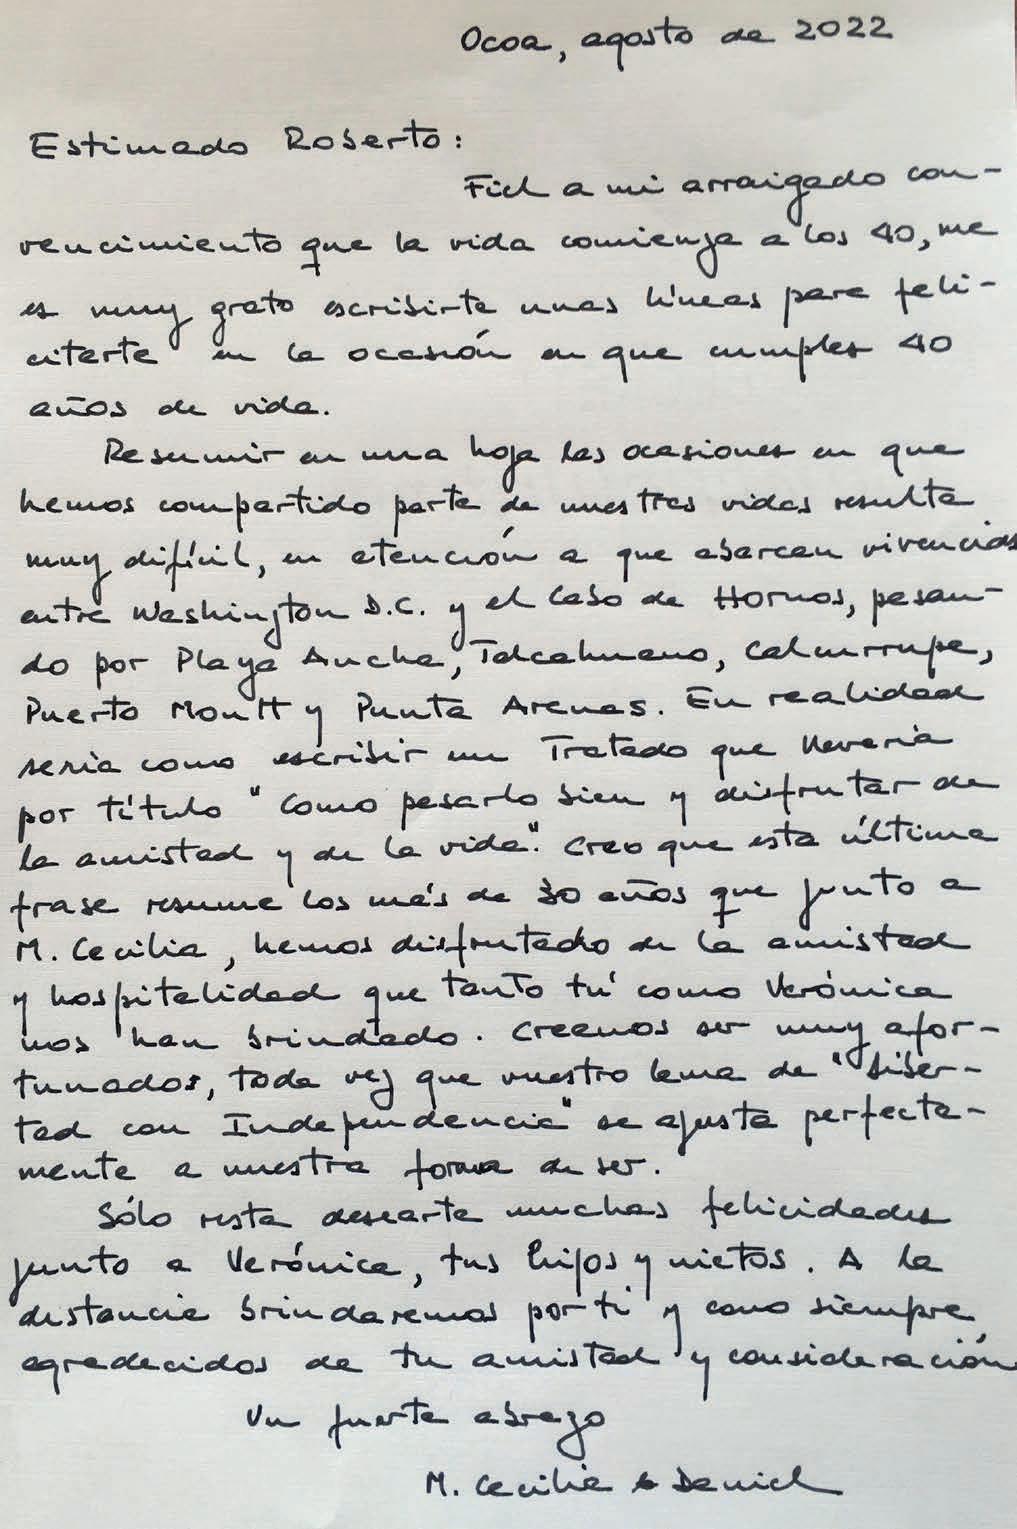 Ocoa, agosto de 2022
Estimado Roberto:
Fiel a mi arraigado con-
vencimiento que la vida comienza a los 40, me
es muy grato escribirte unas líneas para feli-
citarte en la ocasión en que cumples 40
años de vida.
Resumir en una hoja las ocasiones en que
hemos compartido parte de nuestras vidas resulta
muy difícil, en atención a que abarcan vivencias
entre Washington D.C. y el Cabo de Hornos, pasan-
do por Playa Ancha, Talcahuano, Calcurrupe,
Puerto Montt y Punta Arenas. En realidad
sería como escribir un Tratado que llevaría
por título "Como pasarlo bien y disfrutar de
la amistad y de la vida". Creo que esta última
frase resume los más de 30 años que junto a
M. Cecilia, hemos disfrutado de la amistad
y hospitalidad que tanto tú como Verónica
nos han brindado. Creemos ser muy afor-
tunados, toda vez que vuestro lema de "Liber-
tad con Independencia" se ajusta perfecta-
mente a nuestra forma de ser.
Sólo resta desearte muchas felicidades
junto a Verónica, tus hijos y nietos. A la
distancia brindaremos por ti y como siempre
agradecidos de tu amistad y consideración
Un fuerte abrazo
M. Cecilia & Daniel